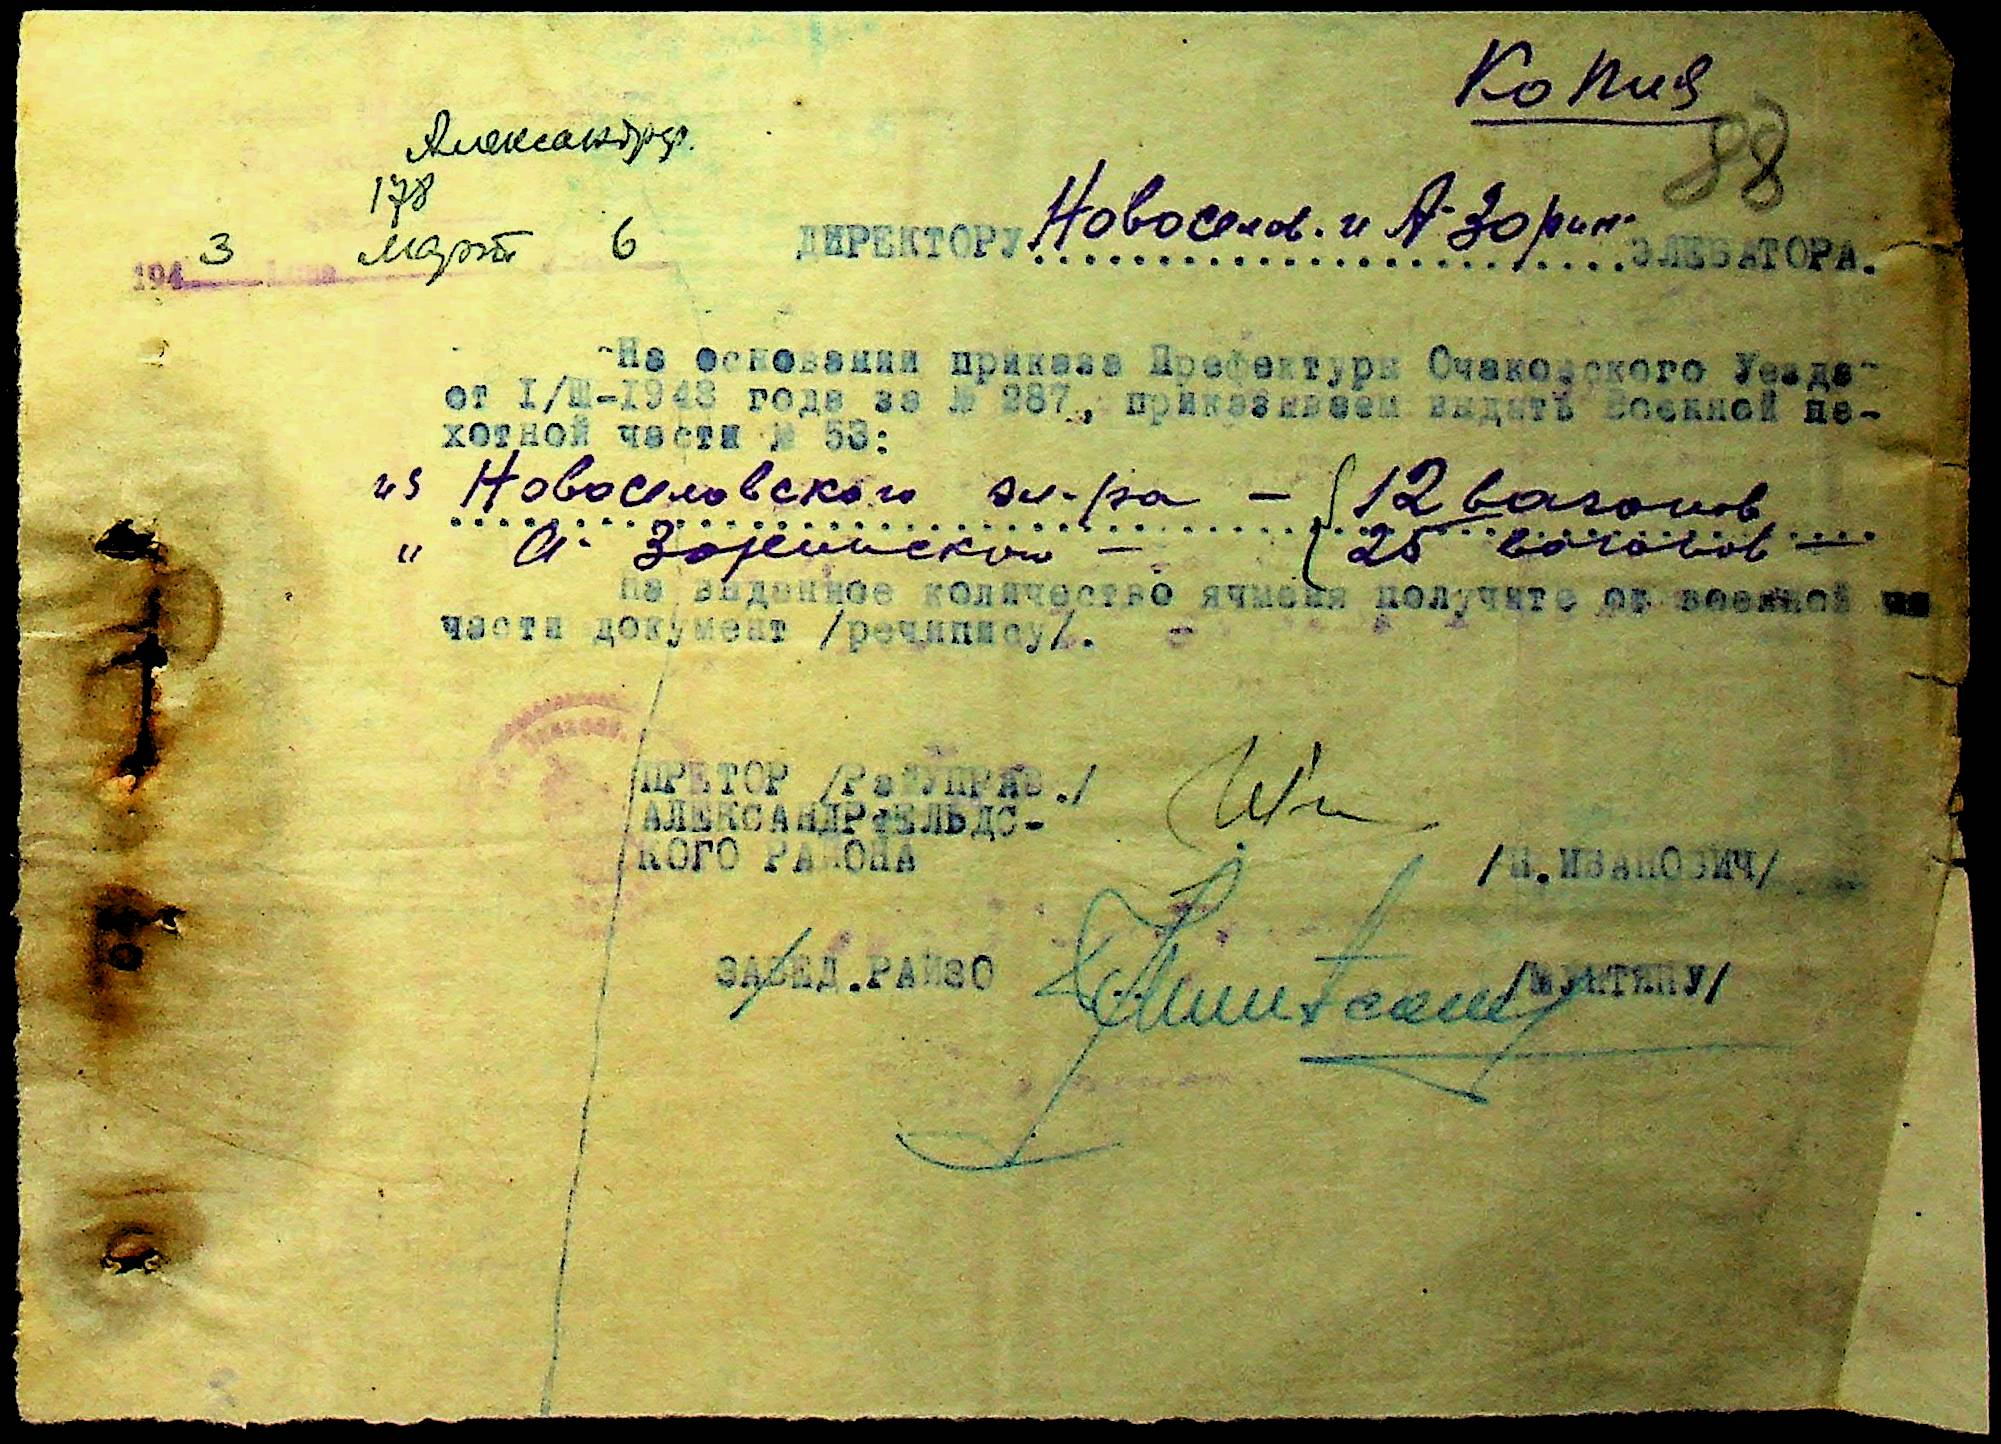 Копия
88
Александрф.
178
194 3 Март 6
ДИРЕКТОРУ Новоселов. и А-Зорин. ЭЛЕВАТОРА.
На основании приказа Префектуры Очаковского Уезда
от I/Ш-1943 года за № 287, приказываем выдать Военной пе-
хотной части № 53:
из Новоселовского эл-ра — 12 вагонов
" А-Зоринского — 25 вагонов —
На выданное количество ячменя получите от военной
части документ /речипису/.
ПРЕТОР /РайУПРАВ./
АЛЕКСАНДРФЕЛЬДС-
КОГО РАЙОНА
/И.ИВАНОВИЧ/
ЗАВЕД.РАЙЗО /МУНТЯНУ/